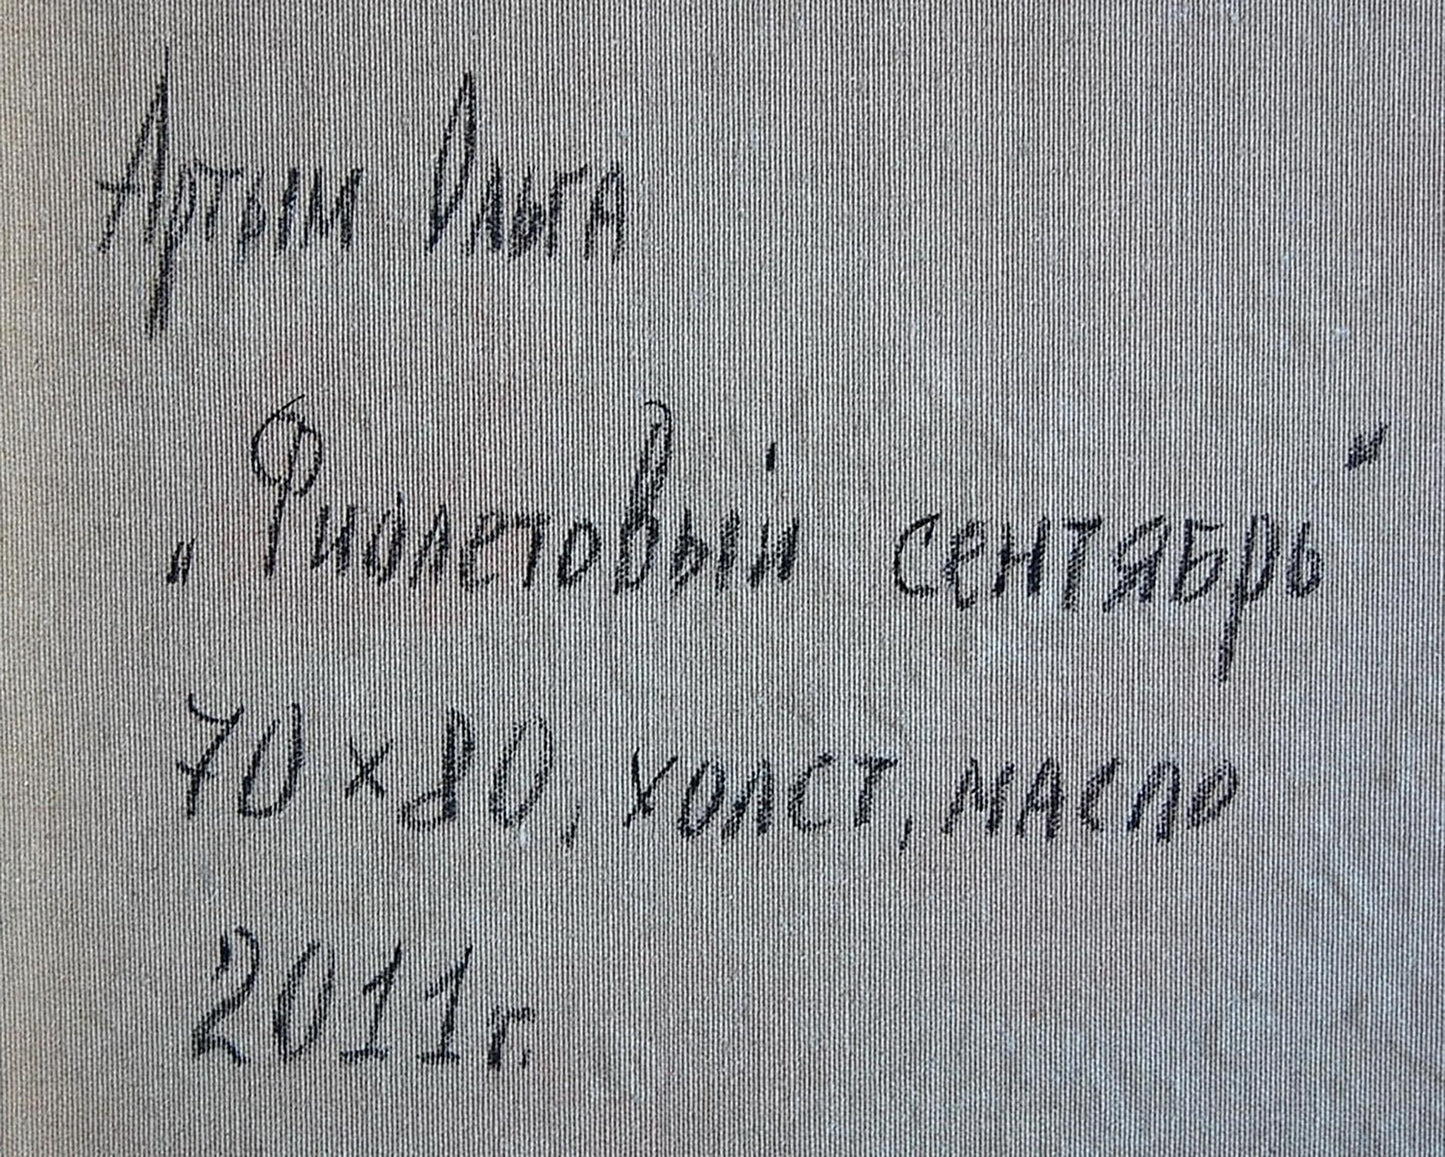 Артым Ольга
„Фиолетовый сентябрь"
70×80, холст, масло
2011г.